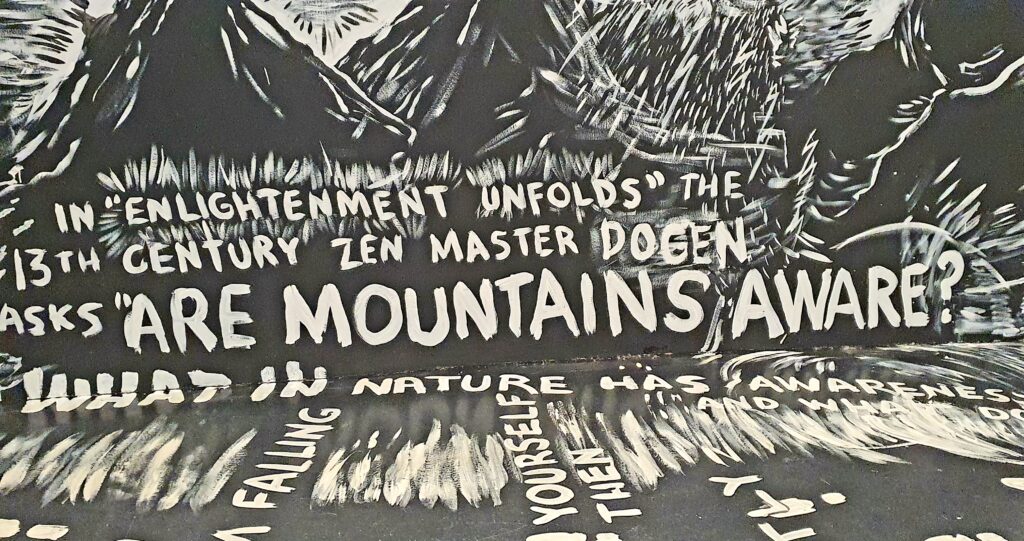 IN "ENLIGHTENMENT UNFOLDS" THE
13TH CENTURY ZEN MASTER DOGEN
ASKS "ARE MOUNTAINS AWARE?
WHAT IN NATURE HAS AWARENESS
AND WHAT DO
FALLING
YOURSELF
THEN